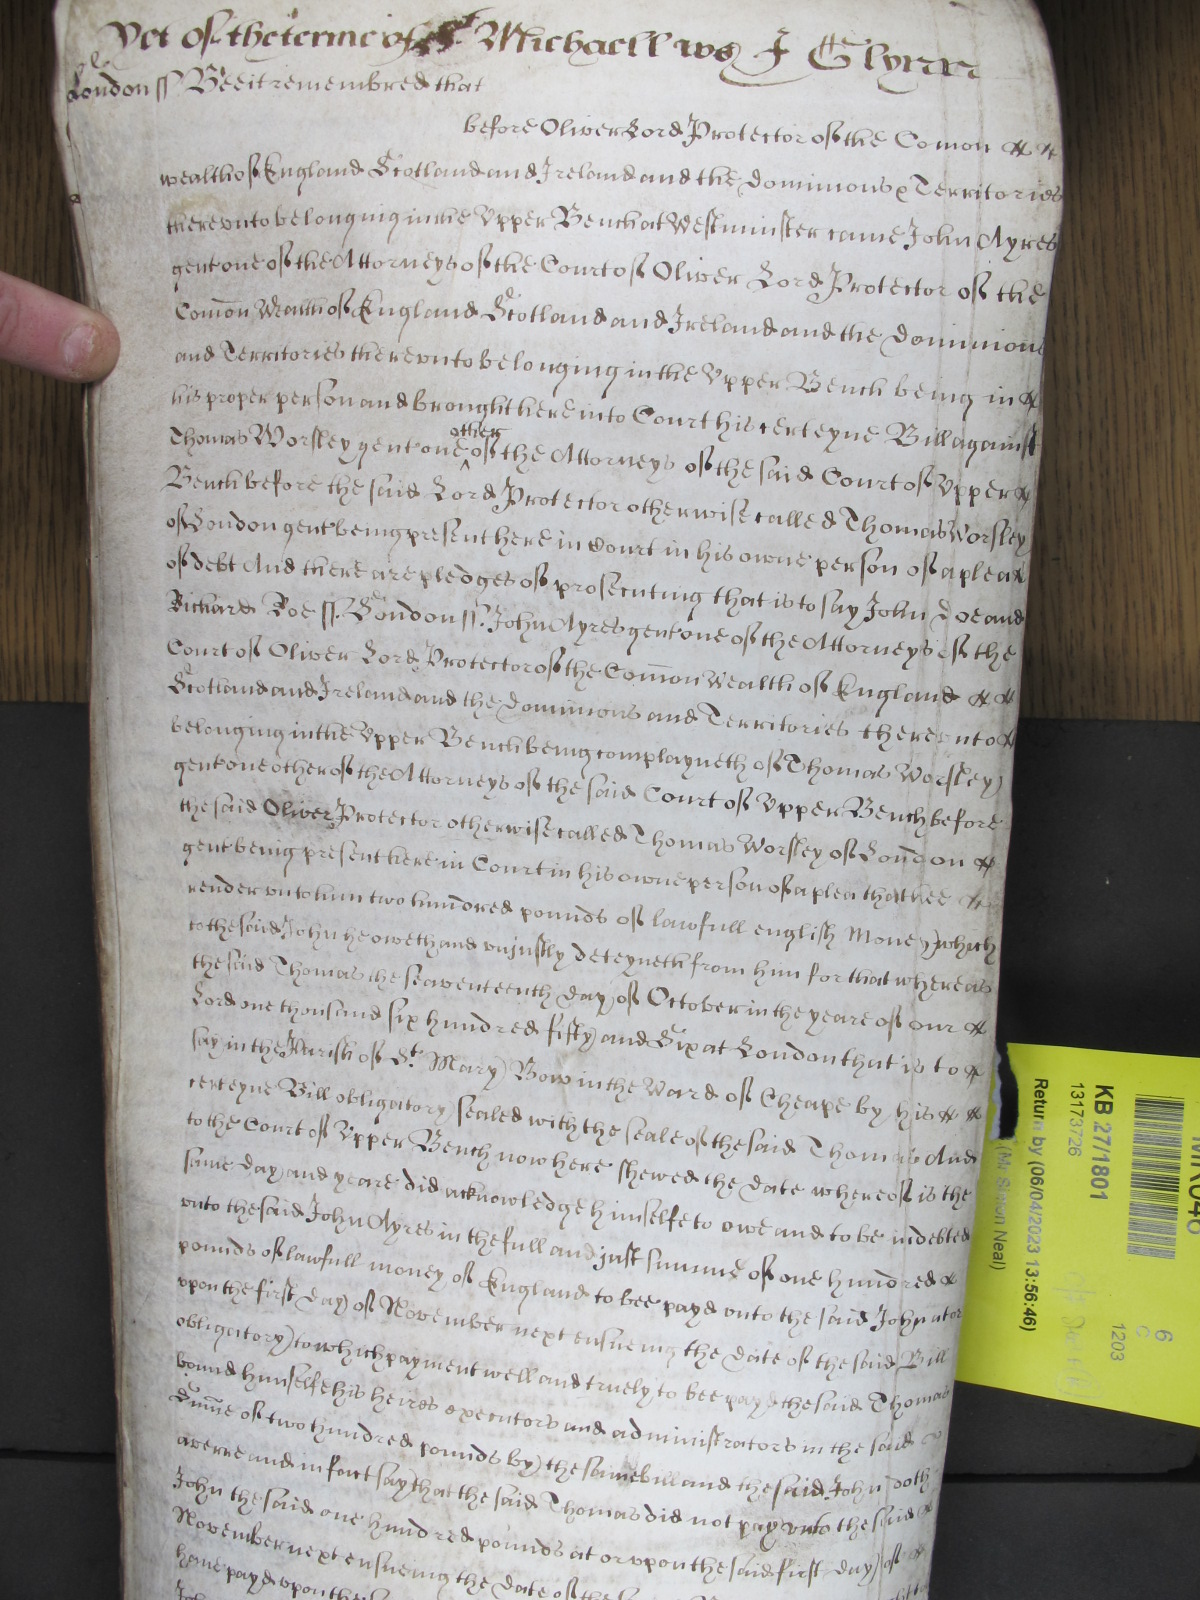 Yet of the terme of St Michaell wit⁠s J Glynn
London ss Bee it remembred that
before Oliver Lord Protector of the Comon
wealth of England Scotland and Ireland and the Dominions & Territories
thereunto belonging in the Upper Bench at Westminster came John Ayres
gent one of the Attorneys of the Court of Oliver Lord Protector of the
Comon Wealth of England Scotland and Ireland and the Dominions
and Territories thereunto belonging in the Upper Bench being in
his proper person and brought here into Court his certeyne Bill against
Thomas Worsley gent one other of the Attorneys of the said Court of Upper
Bench before the said Lord Protector otherwise called Thomas Worsley
of London gent being present here in Court in his owne person of a plea
of debt And there are pledges of prosecuting that is to say John Doe and
Richard Roe ss. London ss. John Ayres gent one of the Attorneys of the
Court of Oliver Lord Protector of the Comon Wealth of England
Scotland and Ireland and the Dominions and Territories thereunto
belonging in the Upper Bench being complayneth of Thomas Worsley
gent one other of the Attorneys of the said Court of Upper Bench before
the said Oliver Protector otherwise called Thomas Worsley of London
gent being present here in Court in his owne person of a plea that hee
render unto him two hundred pounds of lawfull english Money which
to the said John he oweth and unjustly deteyneth from him for that whereas
the said Thomas the seaventeenth day of October in the yeare of our
Lord one thousand six hundred fifty and Six at London that is to
say in the Parish of St. Mary Bow in the Ward of Cheape by his
certeyne Bill obligatory sealed with the seale of the said Thomas And
to the Court of Upper Bench now here shewed the date whereof is the
same day and yeare did acknowledge himselfe to owe and to be indebted
unto the said John Ayres in the full and just summe of one hundred
pounds of lawfull money of England to bee payd unto the said John at or
upon the first day of November next ensueing the date of the said Bill
obligatory to which payment well and truely to bee payd the said Thomas
bound himselfe his heires executors and administrators in the said
Sume of two hundred pounds by the same bill and the said John doth
averre and in fact say that the said Thomas did not pay unto the said
John the said one hundred pounds at or upon the said first day of
November next ensueing the date of the
have payd upon the
KB 27/1801
13173726
Return by (06/04/2023 13:56:46)
(Mr Simon Neal)
6
C
1203